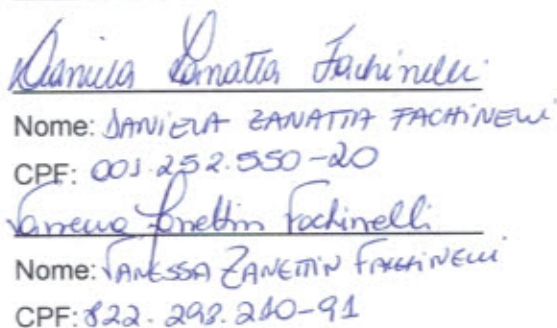 Daniela Zanatta Fachinelli
Nome: DANIELA ZANATTA FACHINELLI
CPF: 001.252.550-20
Vanessa Zanettin Fachinelli
Nome: VANESSA ZANETTIN FACHINELLI
CPF: 822.293.210-91